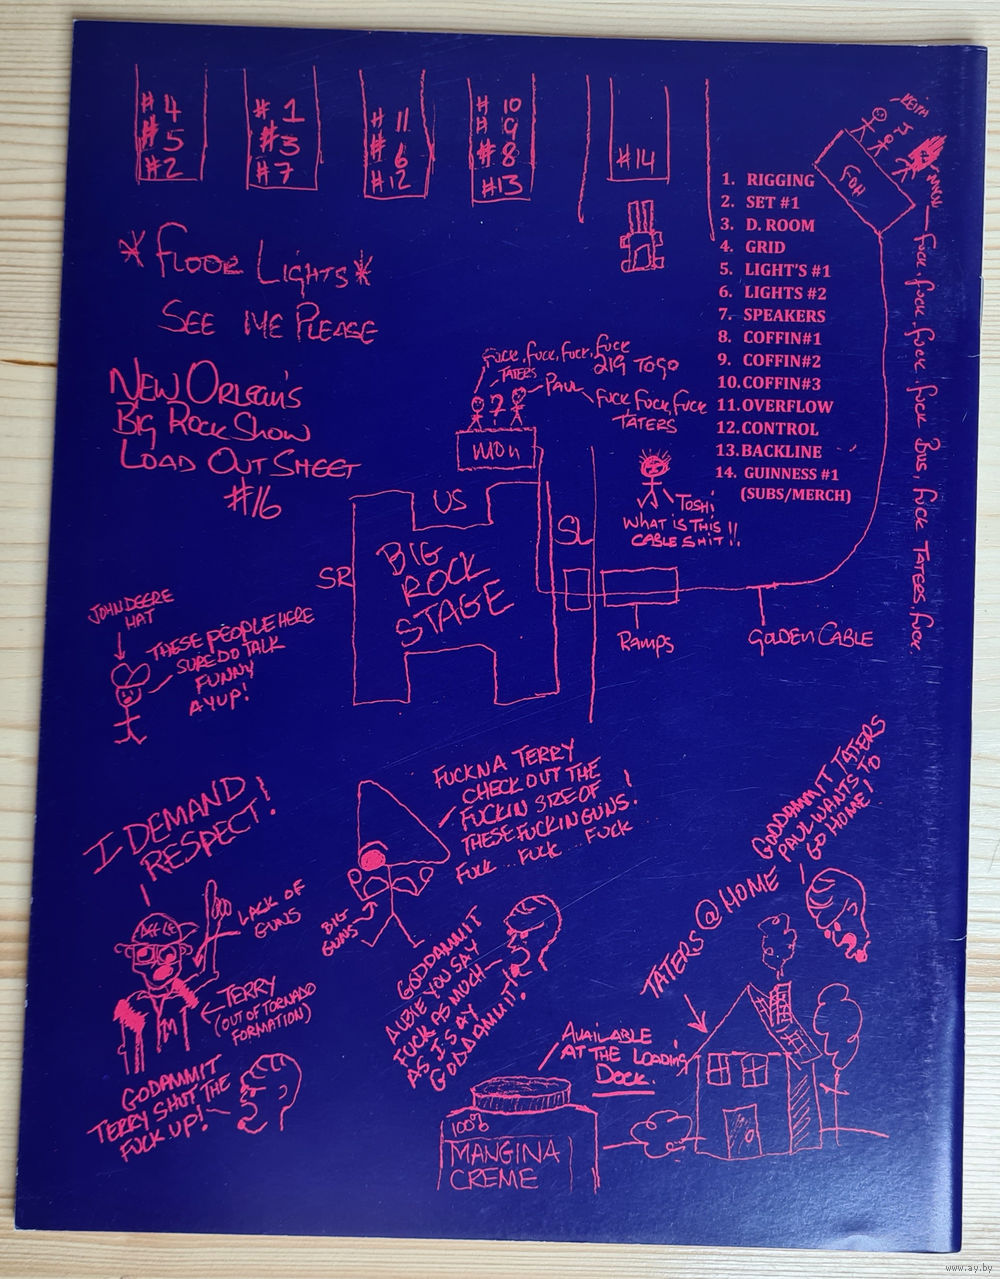 # 4
# 5
# 2
# 1
# 3
# 7
# 11
# 6
# 12
# 10
# 9
# 8
# 13
# 14
KEITH
FOH
1. RIGGING
2. SET #1
3. D. ROOM
4. GRID
5. LIGHT'S #1
6. LIGHTS #2
7. SPEAKERS
8. COFFIN#1
9. COFFIN#2
10. COFFIN#3
11. OVERFLOW
12. CONTROL
13. BACKLINE
14. GUINNESS #1
(SUBS/MERCH)
FUCK, FUCK, FUCK, FUCK, FUCK BUS, FUCK TATERS, FUCK
* FLOOR LIGHTS *
SEE ME PLEASE
NEW ORLEAN'S
BIG ROCK SHOW
LOAD OUT SHEET
#16
FUCK, FUCK, FUCK, FUCK
219 TO GO
TATERS
?
PAUL
FUCK FUCK, FUCK
TATERS
MON
TOSHI
WHAT IS THIS
CABLE SHIT!!
US
SR
SL
BIG
ROCK
STAGE
RAMPS
GOLDEN CABLE
JOHN DEERE
HAT
THESE PEOPLE HERE
SURE DO TALK
FUNNY
AYUP!
I DEMAND
RESPECT!
LACK OF
GUNS
DEF LEP
TERRY
(OUT OF TORNADO
FORMATION)
M
GODAMMIT
TERRY SHUT THE
FUCK UP!
FUCKNA TERRY
CHECK OUT THE
FUCKIN SIZE OF
THESE FUCKIN GUNS!
FUCK... FUCK... FUCK
BIG
GUNS
GODDAMMIT
AUBIE YOU SAY
FUCK AS MUCH
AS I SAY
GODDAMMIT!
GODDAMMIT TATERS
PAUL WANTS TO
GO HOME!
TATERS @ HOME
AVAILABLE
AT THE LOADING
DOCK.
100%
MANGINA
CREME
www.ay.by